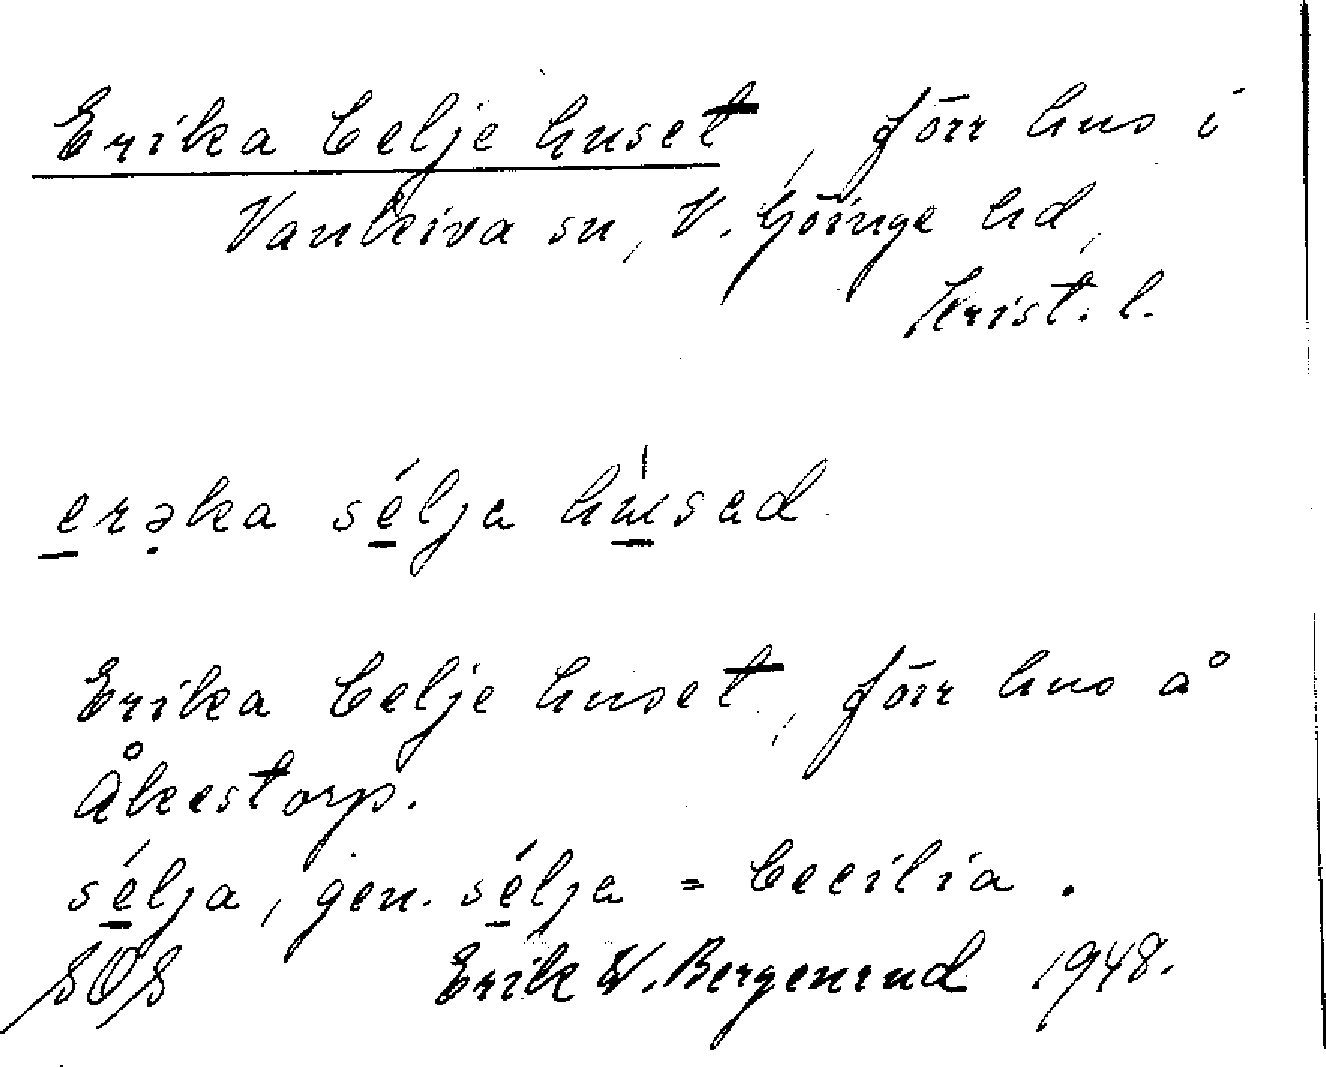 Erika Celje huset, förr hus i
Vankiva sn, V. Göinge hd,
Krist. l.
erəka sélja húsad
Erika Celje huset, förr hus å
Åkestorp.
sélja, gen. sélja = Cecilia.
SOS Erik W. Bergenrud 1948.